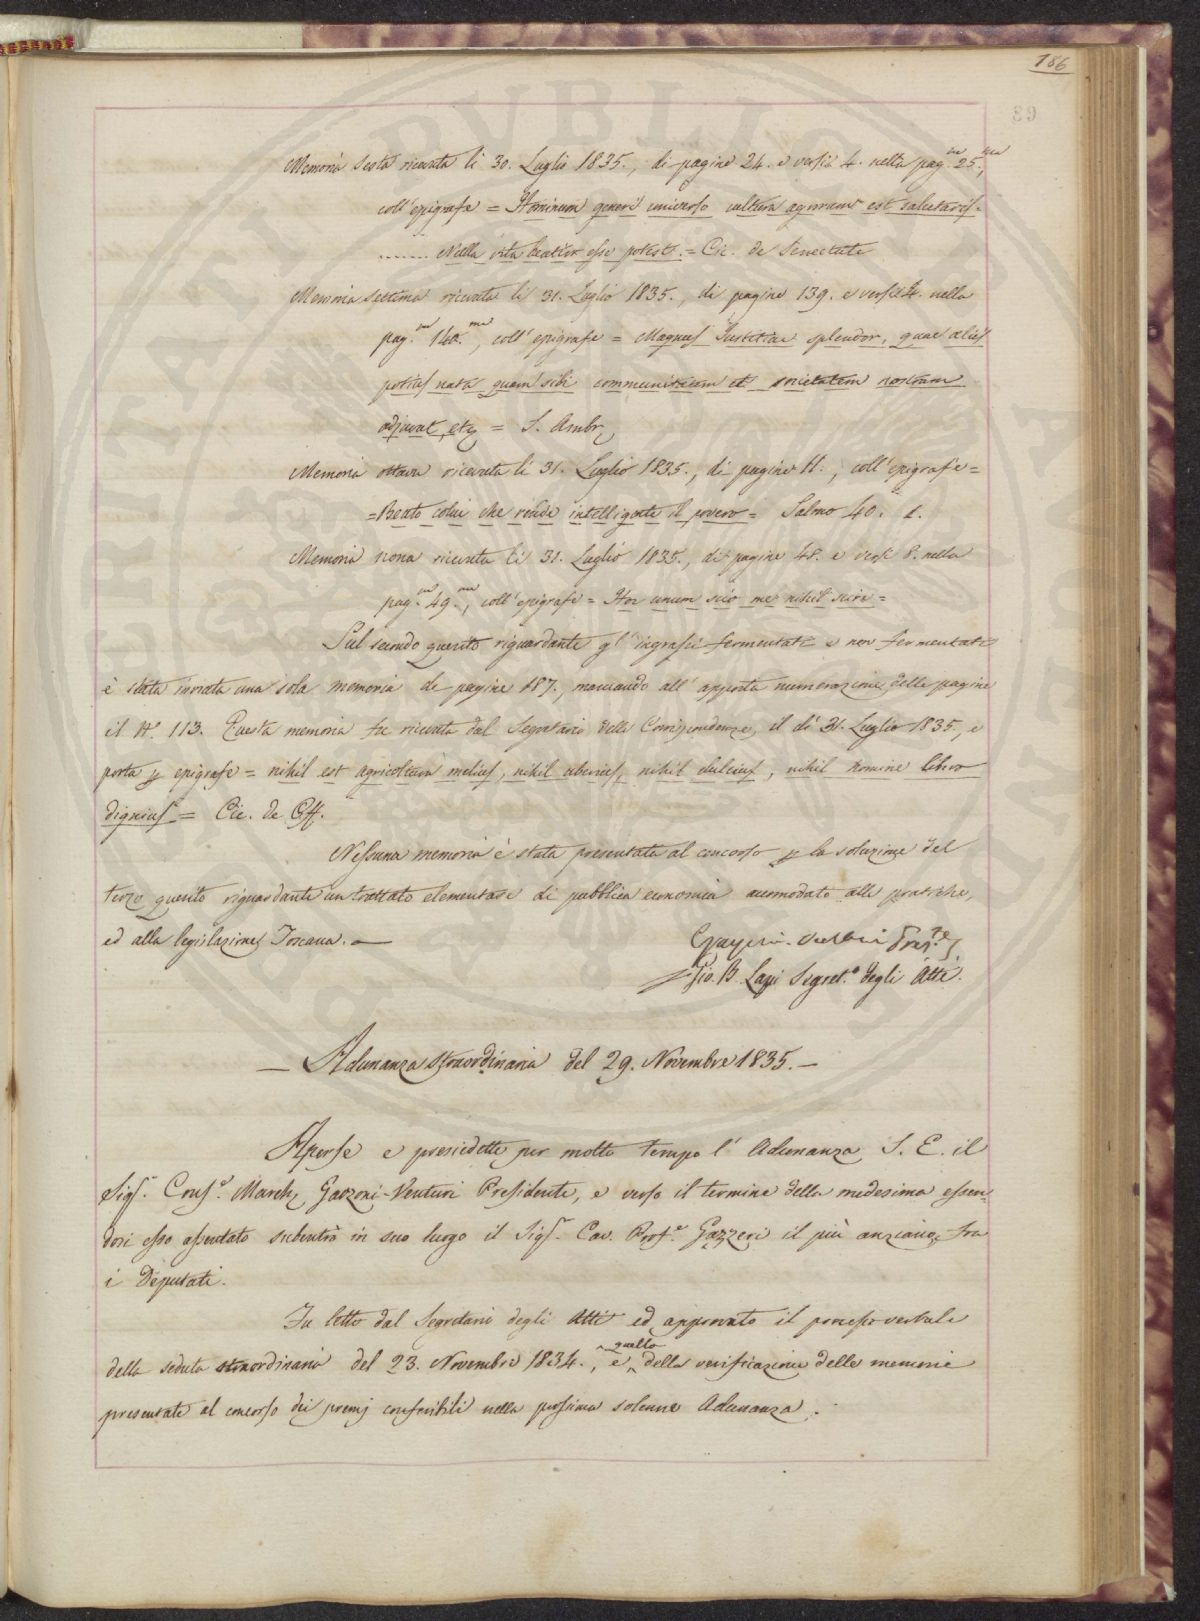 186
89
Memoria sesta ricevuta li 30. Luglio 1835., di pagine 24. e versi 4. nella pag.na 25.ma,
coll'epigrafe = Hominum generi universo cultura agrorum est salutaris.
...... Nulla vita beatior esse potest. = Cic. de Senectute
Memoria settima ricevuta li 31. Luglio 1835., di pagine 139. e versi 4. nella
pag.na 140.ma, coll'epigrafe = Magnus Iustitiae splendor, quae aliis
potius nata quam sibi communitatem et societatem nostram
adjuvat, etc = S. Ambr.
Memoria ottava ricevuta li 31. Luglio 1835., di pagine 11., coll'epigrafe =
= Beato colui che rende intelligente il povero = Salmo 40. 1.
Memoria nona ricevuta li 31. Luglio 1835., di pagine 48. e versi 8. nella
pag.na 49.ma, coll'epigrafe = Hoc unum scio me nihil scire =
Sul secondo quesito riguardante gl'ingrassi fermentati e non fermentati
è stata inviata una sola memoria di pagine 187., mancando all'apposta numerazione delle pagine
il N.º 113. Questa memoria fu ricevuta dal Segretario delle Corrispondenze, il dì 31. Luglio 1835., e
porta p epigrafe = nihil est agricoltura melius, nihil uberius, nihil dulcius, nihil homine libero
dignius = Cic. de Off.
Nessuna memoria è stata presentata al concorso p la soluzione del
terzo quesito riguardante un trattato elementare di pubblica economia accomodato alle pratiche,
ed alla legislazione Toscana. —
Venturi Pres.te
Gio. B. Lapi Segret.º degli Atti.
— Adunanza straordinaria del 29. Novembre 1835. —
Aperse e presiedette per molto tempo l'Adunanza S. E. il
Sig.r Cons.e March. Garzoni-Venturi Presidente, e verso il termine della medesima essen-
dosi esso assentato subentrò in suo luogo il Sig.r Cav. Prof.e Gazzeri il più anziano fra
i Deputati.
Fu letto dal Segretario degli Atti ed approvato il processo verbale
della seduta straordinaria del 23. Novembre 1834., e quello della verificazione delle memorie
presentate al concorso dei premj conferibili nella prossima solenne Adunanza.